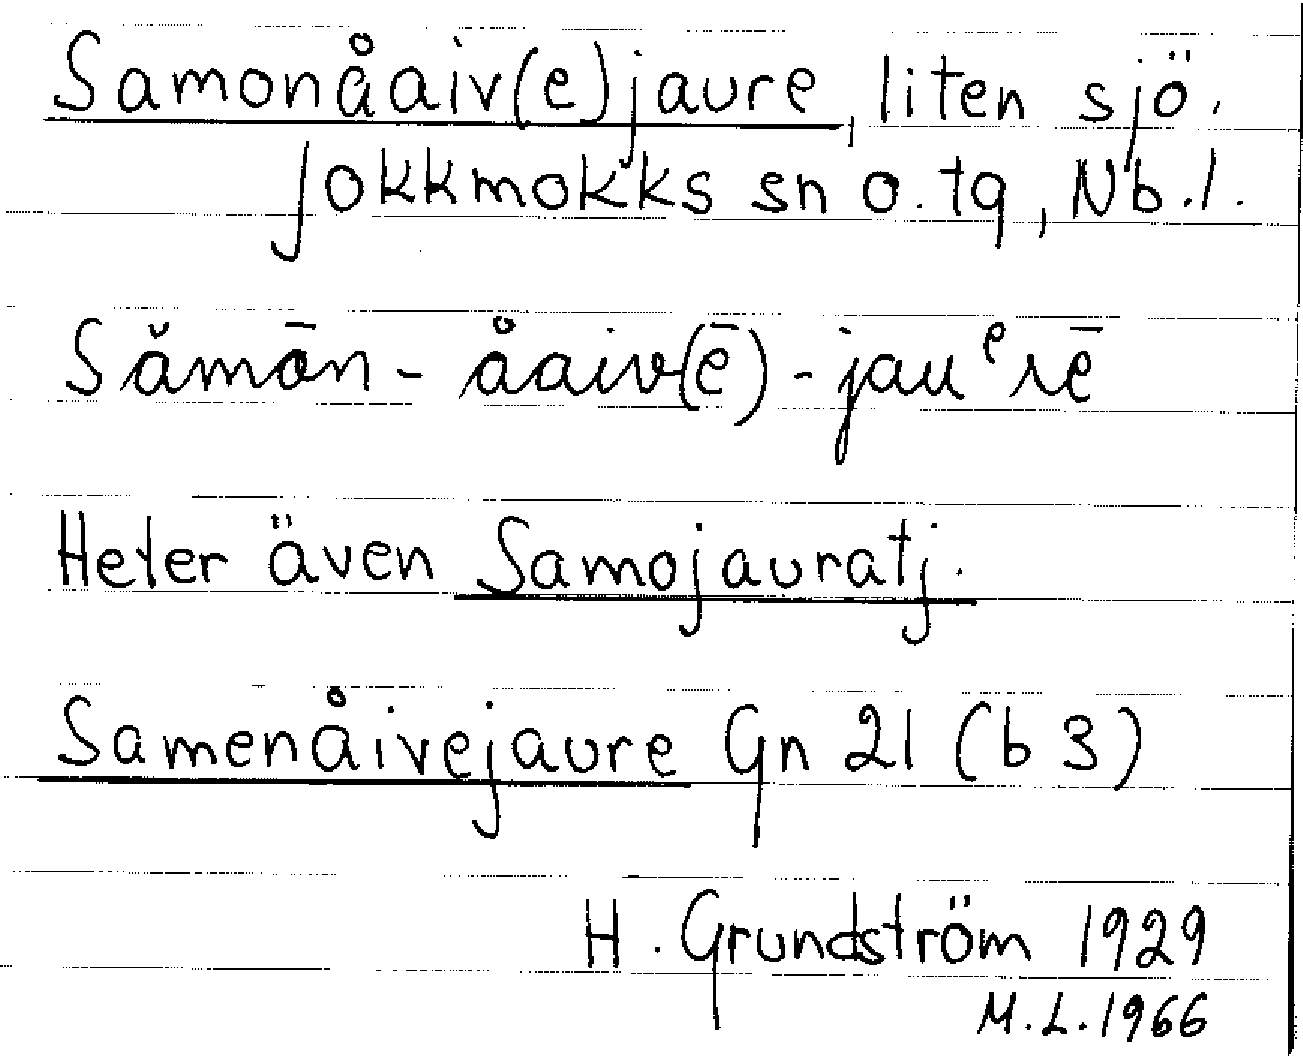 Samonåaiv(e)jaure, liten sjö.
Jokkmokks sn o. tg, Nb. l.
Sǎmōn-åaiv(ē)-jauᵉrē
Heter även Samojauratj.
Samenåivejaure Gn 21 (b 3)
H. Grundström 1929
M.L. 1966